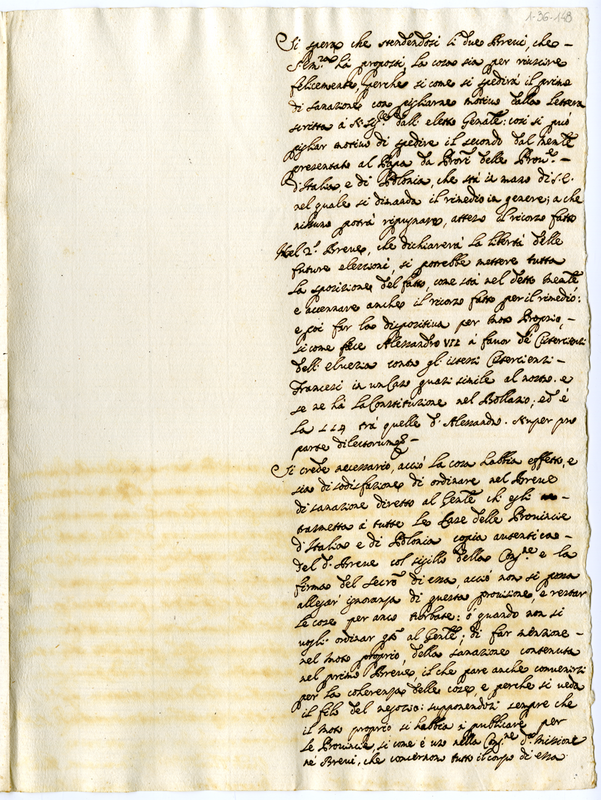 1-36-148
Si spera che stendendosi li due Brevi, che
S. Em.za hà proposti, la cosa sia per riuscire
felicemente, perche si come si spedirà il primo
di sanazione con pigliarne motivo dalla lettera
scritta à N. Sig.re dall' eletto Gen̄ale: così si può
pigliar motivo di spedire il secondo dal mem.le
presentato al Papa da Prov.i delle Prov.e
d'Italia, e di Polonia, che stà in mano di S. E.
nel quale si dimanda il rimedio in genere; a che
nissuno potrà ripugnare, atteso il ricorso fatto
Nel 2.º Breve, che dichiarerà la libertà delle
future elezzioni, si potrebbe mettere tutta
la sposizione del fatto, come stà nel detto mem.le,
e accennare anche il ricorso fatto per il rimedio:
e poi far la dispositiva per moto Proprio,
si come fece Alessandro VII à favor de' Cisterciensi
dell' elvezia contro gl' istessi Cisterciensi
Francesi in un Caso quasi simile al nostro. e
se ne hà la Constituzione nel Bollario; ed è
la 114 trà quelle d' Alessandro. Nuper pro
parte dilectorum &
Si crede necessario, acciò la cosa habbia effetto, e
sia di sodisfazione di ordinare nel Breve
di sanazione diretto al Gen̄le che egli
trasmetta à tutte le Case delle Provincie
d'Italia e di Polonia copia autentica
del d.º Breve col sigillo della Cong.ne e la
firma del Secro di essa, acciò non si possa
allegar ignoranza di questa provisione, e restar
le cose per anco torbate: ò quando non si
vogli ordinar q.to al Gen̄le; di far menzione
nel moto proprio della sanazione contenuta
nel primo Breve, il che pare anche convenirsi
per la coherenza delle cose, e perche si veda
il filo del negozio: supponendosi sempre che
il moto proprio si habbia à publicare per
le Provincie, si come è uso nella Cong.ne d.a Missione
ne' Brevi, che concernono tutto il corpo di essa